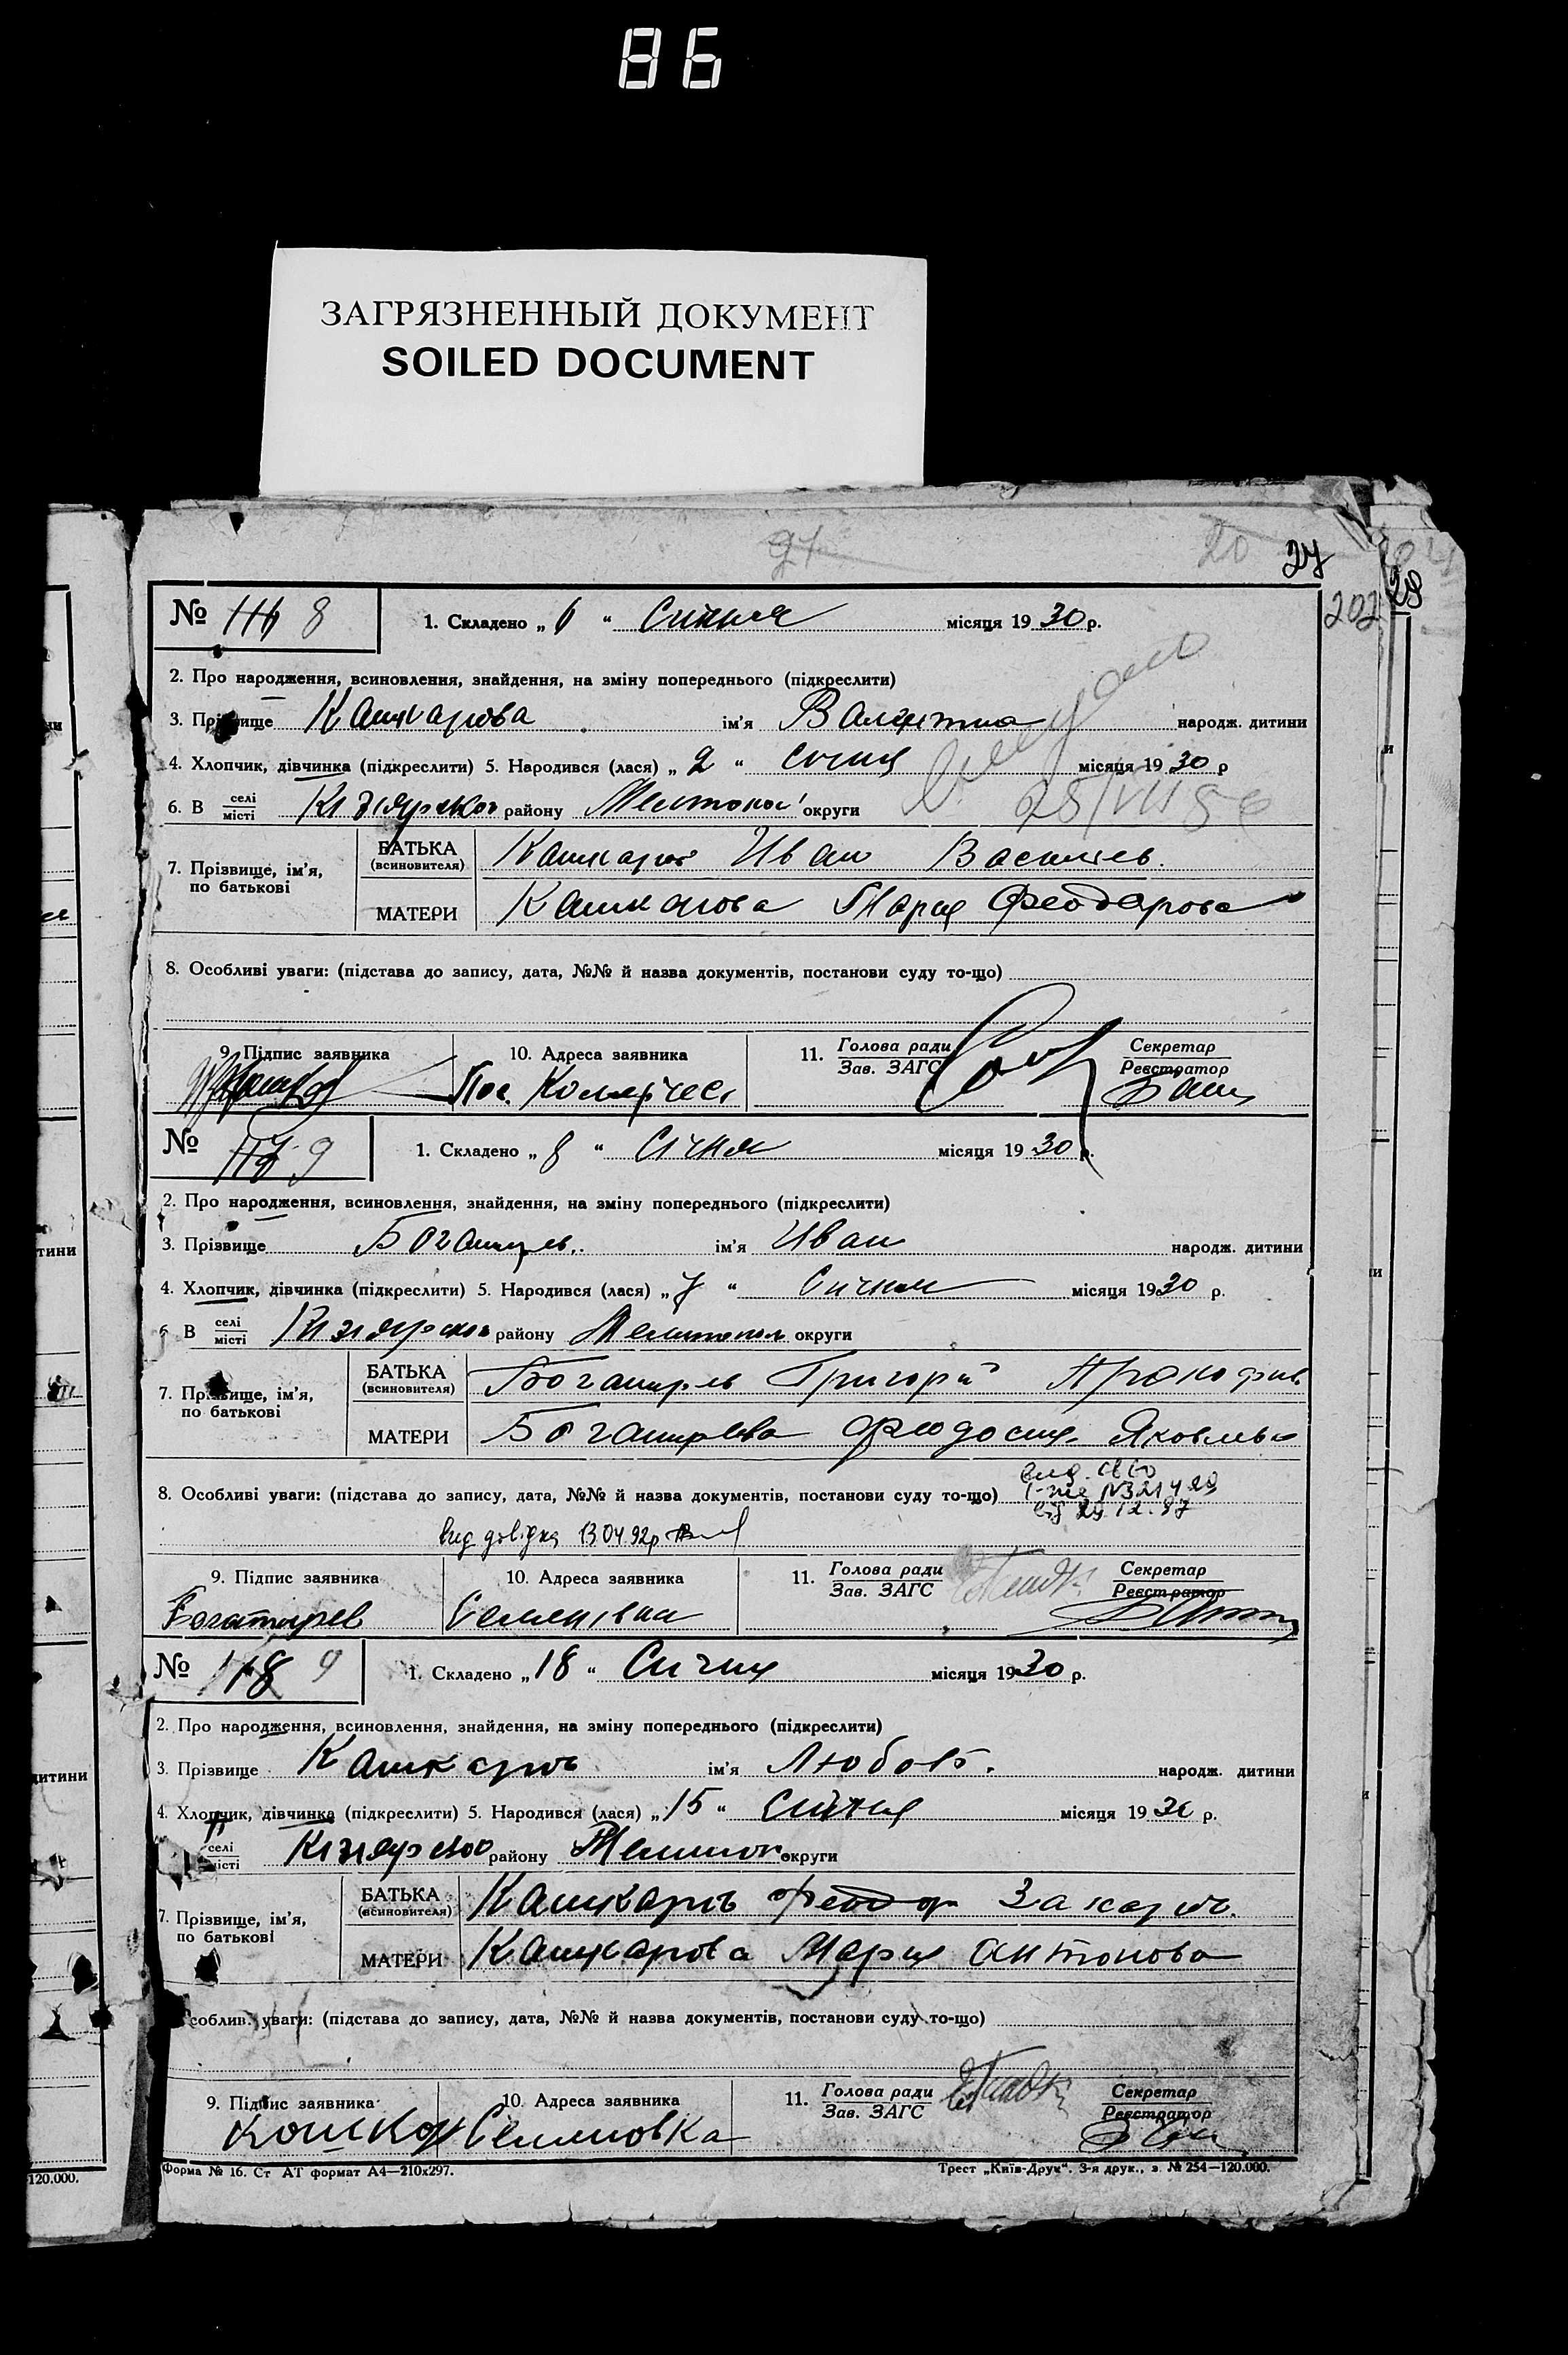 86
ЗАГРЯЗНЕННЫЙ ДОКУМЕНТ
SOILED DOCUMENT
20 27 28
202
№ 116 8 1. Складено „ 6 “ Сичня місяця 1930 р.
2. Про народження, всиновлення, знайдення, на зміну попереднього (підкреслити)
3. Прізвище Кашкарова ім'я Валентина народж. дитини
4. Хлопчик, дівчинка (підкреслити) 5. Народився (лася) „ 2 “ Січня місяця 1930 р
25/VII 56
6. В селі місті Кізіярског району округи
7. Прізвище, ім'я, по батькові
БАТЬКА (всиновителя) Кашкаров Иван Васильев.
МАТЕРИ Кашкарова Мария Феодорова
8. Особливі уваги: (підстава до запису, дата, №№ й назва документів, постанови суду то-що)
9. Підпис заявника 10. Адреса заявника 11. Голова ради Зав. ЗАГС Секретар Реєстратор
Пос.
№ 117 9 1. Складено „ 8 “ Січня місяця 1930 р.
2. Про народження, всиновлення, знайдення, на зміну попереднього (підкреслити)
3. Прізвище ім'я Иван народж. дитини
4. Хлопчик, дівчинка (підкреслити) 5. Народився (лася) „ 7 “ Сичня місяця 1930 р.
6 В селі місті Кизиярског району Мелитопол округи
7. Прізвище, ім'я, по батькові
БАТЬКА (всиновителя) Григорій
МАТЕРИ Феодосия Яковлева
вид. св-во
29.12.87
8. Особливі уваги: (підстава до запису, дата, №№ й назва документів, постанови суду то-що)
вид довідка 13 04 92р
9. Підпис заявника 10. Адреса заявника 11. Голова ради Зав. ЗАГС Секретар Реєстратор
Богатырев
№ 118 9 1. Складено „ 18 “ Сичня місяця 1930 р.
2. Про народження, всиновлення, знайдення, на зміну попереднього (підкреслити)
3. Прізвище Кашкаров ім'я Любовь. народж. дитини
4. Хлопчик, дівчинка (підкреслити) 5. Народився (лася) „ 15 “ Січня місяця 1930 р.
селі місті Кізіярског району Мелитоп округи
7. Прізвище, ім'я, по батькові
БАТЬКА (всиновителя) Кашкаров Феодор Захаров.
МАТЕРИ Кашкарова Мария Антонова
соблив. уваги: (підстава до запису, дата, №№ й назва документів, постанови суду то-що)
9. Підпис заявника 10. Адреса заявника 11. Голова ради Зав. ЗАГС Секретар Реєстратор
Форма № 16. Ст АТ формат А4—210х297. Трест „Київ-Друк“. 3-я друк., з. № 254—120.000.
120.000.